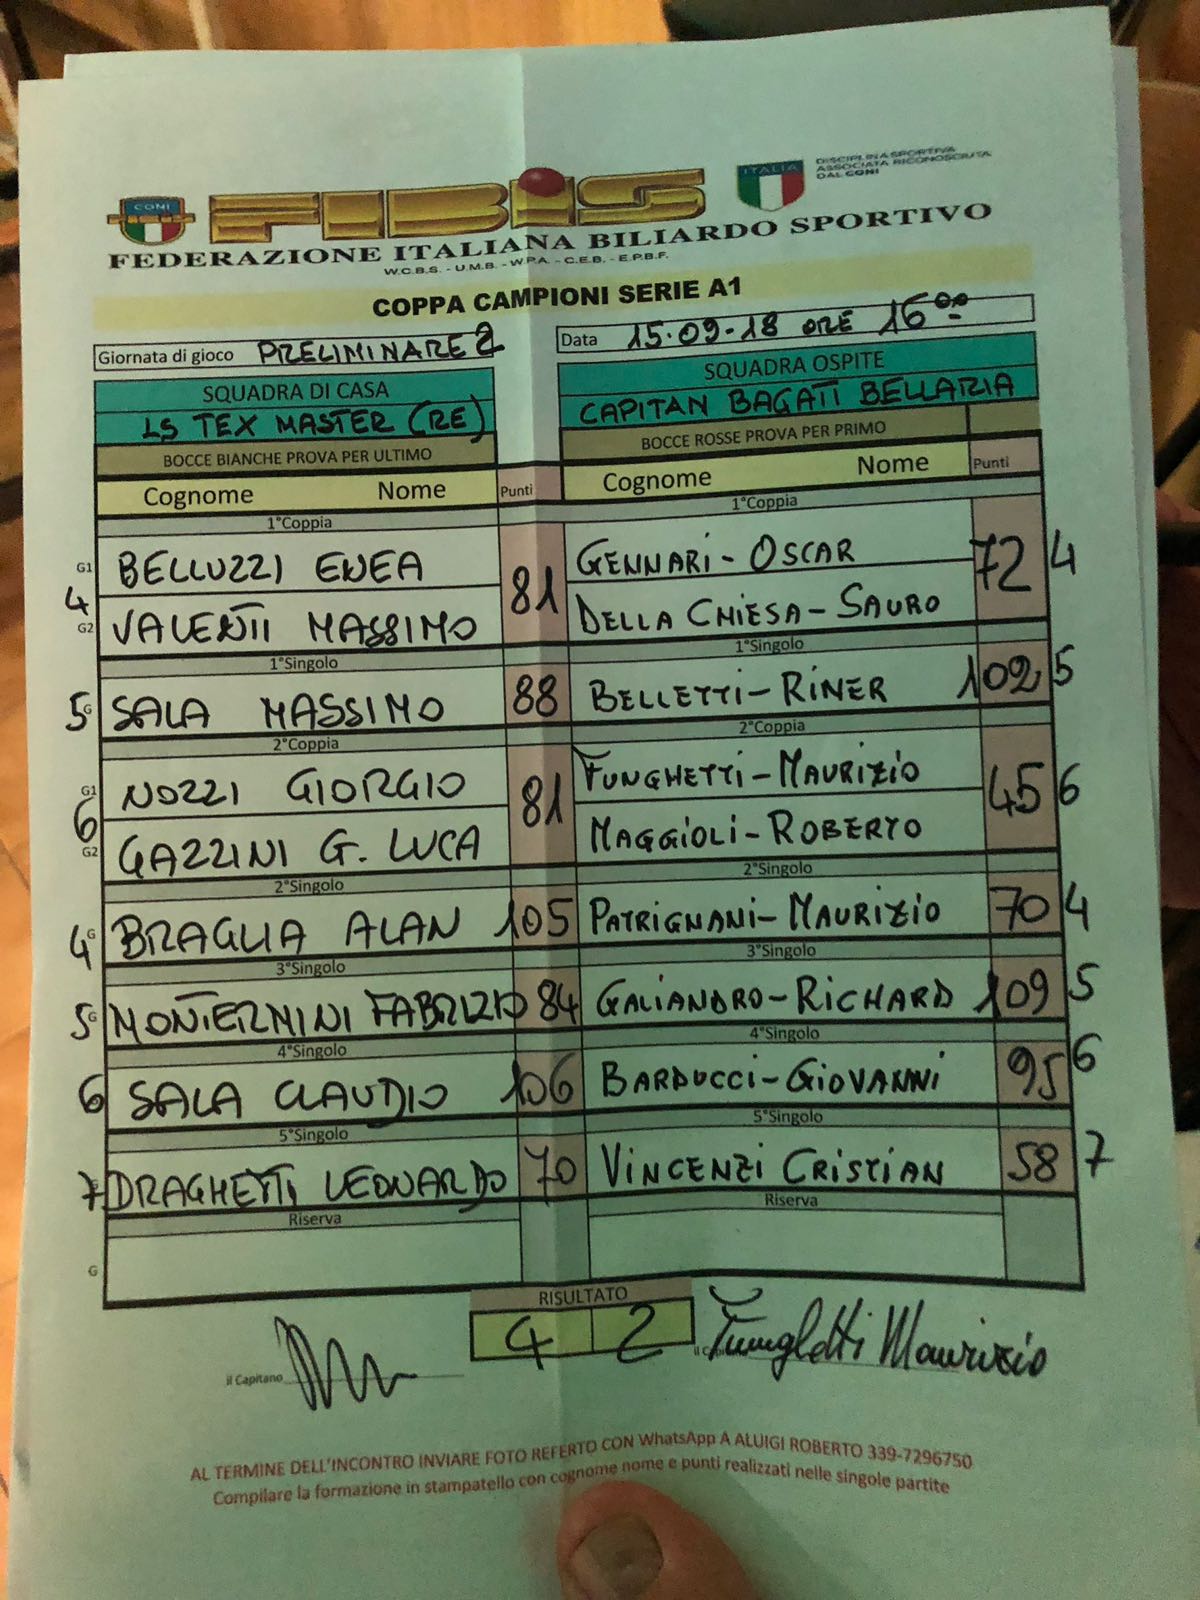 CONI
FIBIS
ITALIA
DISCIPLINA SPORTIVA
ASSOCIATA RICONOSCIUTA
DAL CONI
FEDERAZIONE ITALIANA BILIARDO SPORTIVO
W.C.B.S. - U.M.B. - W.P.A. - C.E.B. - E.P.B.F.
COPPA CAMPIONI SERIE A1
Giornata di gioco PRELIMINARE 2 Data 15.09-18 ORE 16°°
SQUADRA DI CASA SQUADRA OSPITE
LS TEX MASTER (RE) CAPITAN BAGATI BELLARIA
BOCCE BIANCHE PROVA PER ULTIMO BOCCE ROSSE PROVA PER PRIMO
Cognome Nome Punti Cognome Nome Punti
1°Coppia 1°Coppia
G1 BELLUZZI ENEA GENNARI-OSCAR
4 81 72 4
G2 VALENTI MASSIMO DELLA CHIESA-SAURO
1°Singolo 1°Singolo
5 G SALA MASSIMO 88 BELLETTI-RINER 102 5
2°Coppia 2°Coppia
G1 NOZZI GIORGIO FUNGHETTI-MAURIZIO
6 81 45 6
G2 GAZZINI G. LUCA MAGGIOLI-ROBERTO
2°Singolo 2°Singolo
4 G BRAGLIA ALAN 105 PATRIGNANI-MAURIZIO 70 4
3°Singolo 3°Singolo
5 G MONTERMINI FABRIZIO 84 GALIANDRO-RICHARD 109 5
4°Singolo 4°Singolo
6 SALA CLAUDIO 106 BARDUCCI-GIOVANNI 95 6
5°Singolo 5°Singolo
7 DRAGHETTI LEONARDO 70 VINCENZI CRISTIAN 58 7
Riserva Riserva
G
RISULTATO
4 2
il Capitano il C Funghetti Maurizio
AL TERMINE DELL'INCONTRO INVIARE FOTO REFERTO CON WhatsApp A ALUIGI ROBERTO 339-7296750
Compilare la formazione in stampatello con cognome nome e punti realizzati nelle singole partite